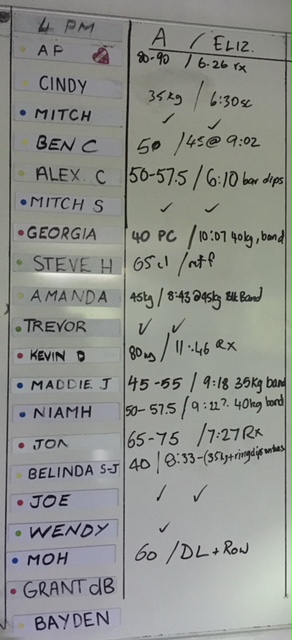 4 PM A / ELIZ.
AP 80-90 / 6:26 rx
CINDY 35kg / 6:30sc
MITCH ✓ ✓
BEN C 50 / 45@ 9:02
ALEX. C 50-57.5 / 6:10 bar dips
MITCH S ✓ ✓
GEORGIA 40 PC / 10:07 40kg, band
STEVE H 65
AMANDA 45kg / 8:43 @45kg Blk Band
TREVOR ✓ ✓
KEVIN D 80kg / 11:46 RX
MADDIE J 45-55 / 9:18 35kg band
NIAMH 50-57.5 / 40kg band
JON 65-75 / 7:27 Rx
BELINDA S-J 40 / 8:33-(35kg+ringdips
JOE ✓ ✓
WENDY ✓
MOH 60 / DL + Row
GRANT dB
BAYDEN